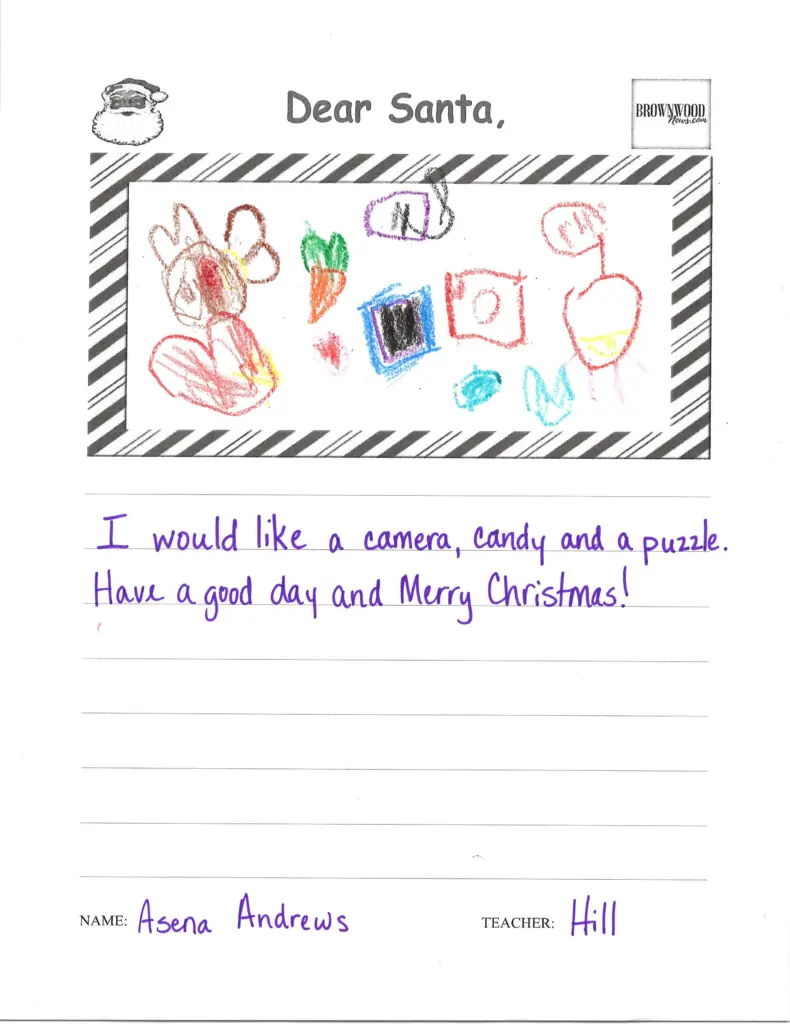 Dear Santa,
BROWNWOOD
News.com
I would like a camera, candy and a puzzle.
Have a good day and Merry Christmas!
NAME: Asena Andrews
TEACHER: Hill